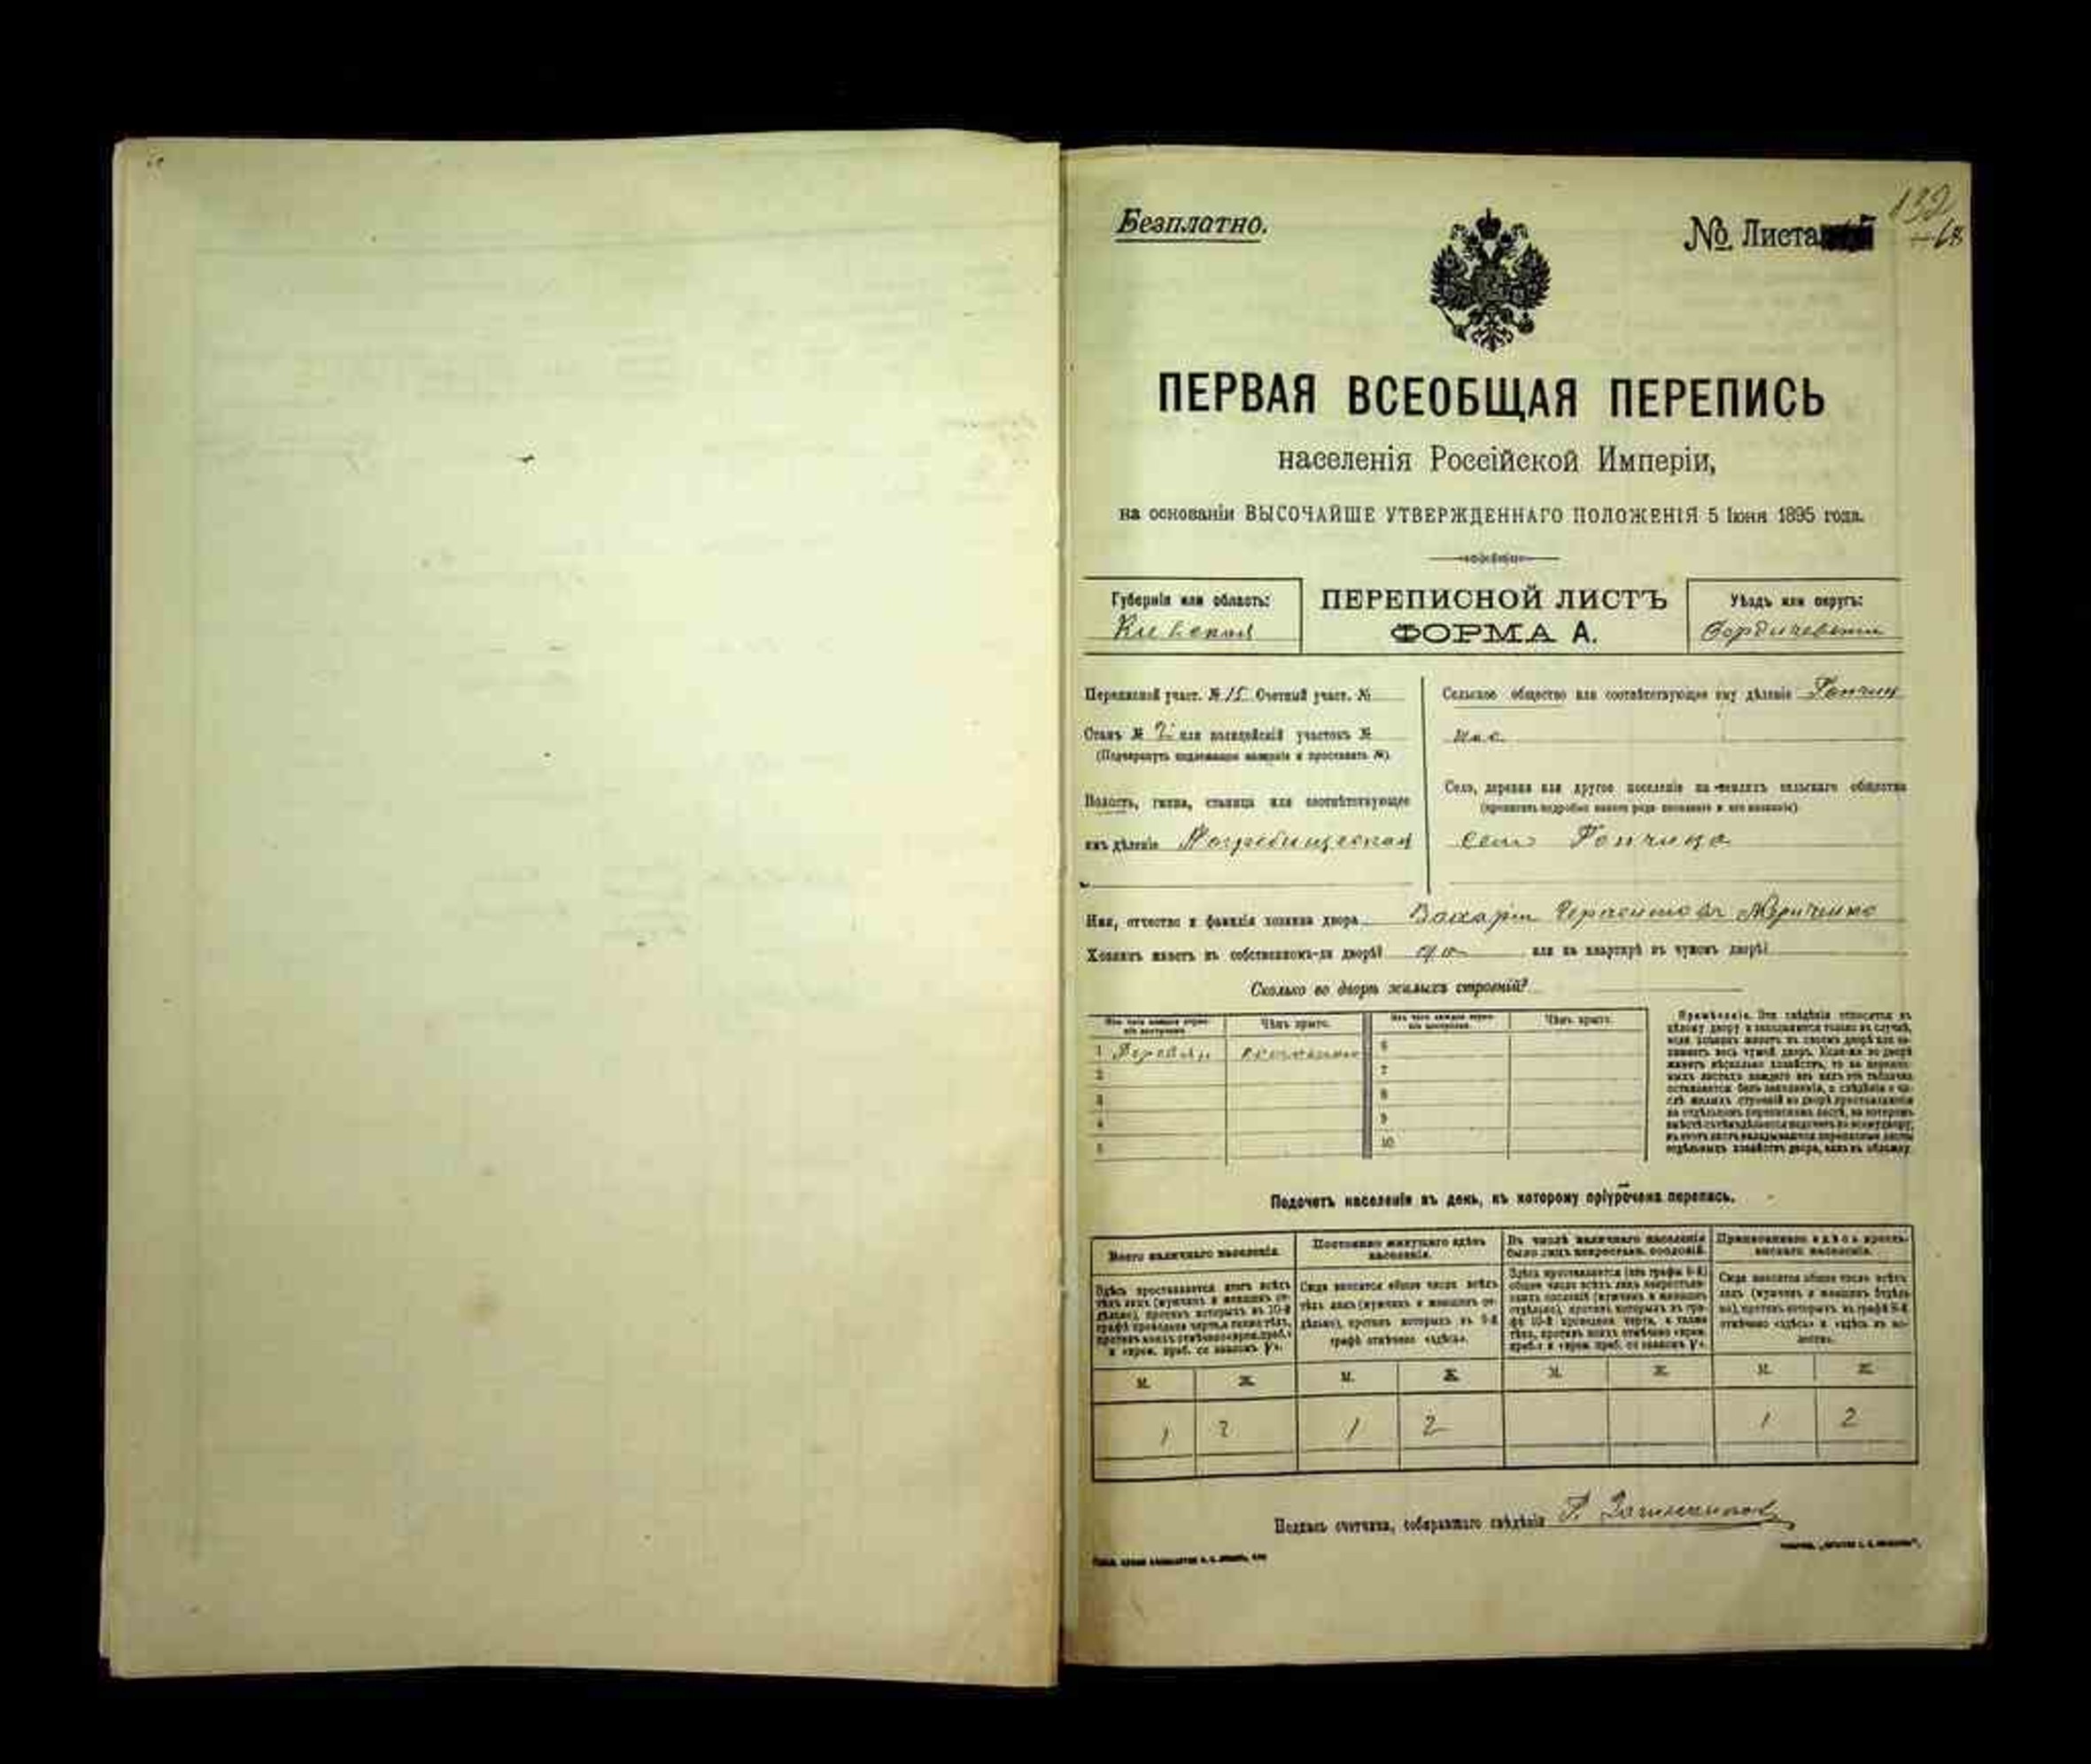 Безплатно.
№ Листа
132
ПЕРВАЯ ВСЕОБЩАЯ ПЕРЕПИСЬ
населенія Россійской Имперіи,
на основаніи ВЫСОЧАЙШЕ УТВЕРЖДЕННАГО ПОЛОЖЕНІЯ 5 Іюня 1895 года.
Губернія или область:
Киевская
ПЕРЕПИСНОЙ ЛИСТЪ
ФОРМА А.
Уѣздъ или округъ:
Бердичевскій
Переписной участ. № 15 Счетный участ. №
Станъ № 2 или полицейскій участокъ №
(Подчеркнуть надлежащее названіе и проставить №).
Волость, гмина, станица или соотвѣтствующее
имъ дѣленіе Погребищеская
Сельское общество или соотвѣтствующее ему дѣленіе Гончиц
кое
Село, деревня или другое поселеніе на земляхъ сельскаго общества
(прописать подробно какого рода поселеніе и его названіе)
село Гончица
Имя, отчество и фамилія хозяина двора Захарій
Хозяинъ живетъ въ собственномъ-ли дворѣ? да или на квартирѣ въ чужомъ дворѣ?
Сколько во дворѣ жилыхъ строеній?
Изъ чего каждое строеніе построено.
Чѣмъ крыто.
Изъ чего каждое строеніе построено.
Чѣмъ крыто.
1 Деревян соломою 6
2 7
3 8
4 9
5 10
Примѣчаніе. Эти свѣдѣнія относятся къ
цѣлому двору и заполняются только въ случаѣ,
если хозяинъ живетъ въ своемъ дворѣ или за-
нимаетъ весь чужой дворъ. Если-же во дворѣ
живетъ нѣсколько хозяйствъ, то на перепис-
ныхъ листахъ каждаго изъ нихъ эта табличка
остается безъ заполненія, а свѣдѣнія о чи-
слѣ жилыхъ строеній во дворѣ проставляются
на отдѣльномъ переписномъ листѣ, на которомъ
вмѣстѣ съ тѣмъ дѣлается подсчетъ по всему двору;
въ этотъ листъ вкладываются переписные листы
отдѣльныхъ хозяйствъ двора, какъ въ обложку.
Подсчетъ населенія въ день, къ которому пріурочена перепись.
Всего наличнаго населенія.
Здѣсь проставляется итогъ всѣхъ
тѣхъ лицъ (мужчинъ и женщинъ от-
дѣльно), противъ которыхъ въ 10-й
графѣ проведена черта, а также тѣхъ,
противъ коихъ отмѣчено «врем. преб.»
и «врем. преб. со знакомъ V».
Постоянно живущаго здѣсь
населенія.
Сюда вносится общее число всѣхъ
тѣхъ лицъ (мужчинъ и женщинъ от-
дѣльно), противъ которыхъ въ 9-й
графѣ отмѣчено «здѣсь».
Въ числѣ наличнаго населенія
было лицъ некрестьян. сословій.
Здѣсь проставляется (изъ графы 6-й)
общее число всѣхъ лицъ некрестьян-
скихъ сословій (мужчинъ и женщинъ
отдѣльно), противъ которыхъ въ гра-
фѣ 10-й проведена черта, а также
тѣхъ, противъ коихъ отмѣчено «врем.
преб.» и «врем. преб. со знакомъ V».
Приписаннаго здѣсь кресть-
янскаго населенія.
Сюда вносится общее число всѣхъ
лицъ (мужчинъ и женщинъ отдѣль-
но), противъ которыхъ въ графѣ 8-й
отмѣчено «здѣсь» и «здѣсь въ во-
лости».
М. Ж. М. Ж. М. Ж. М. Ж.
1 2 1 2 1 2
Подпись счетчика, собиравшаго свѣдѣнія